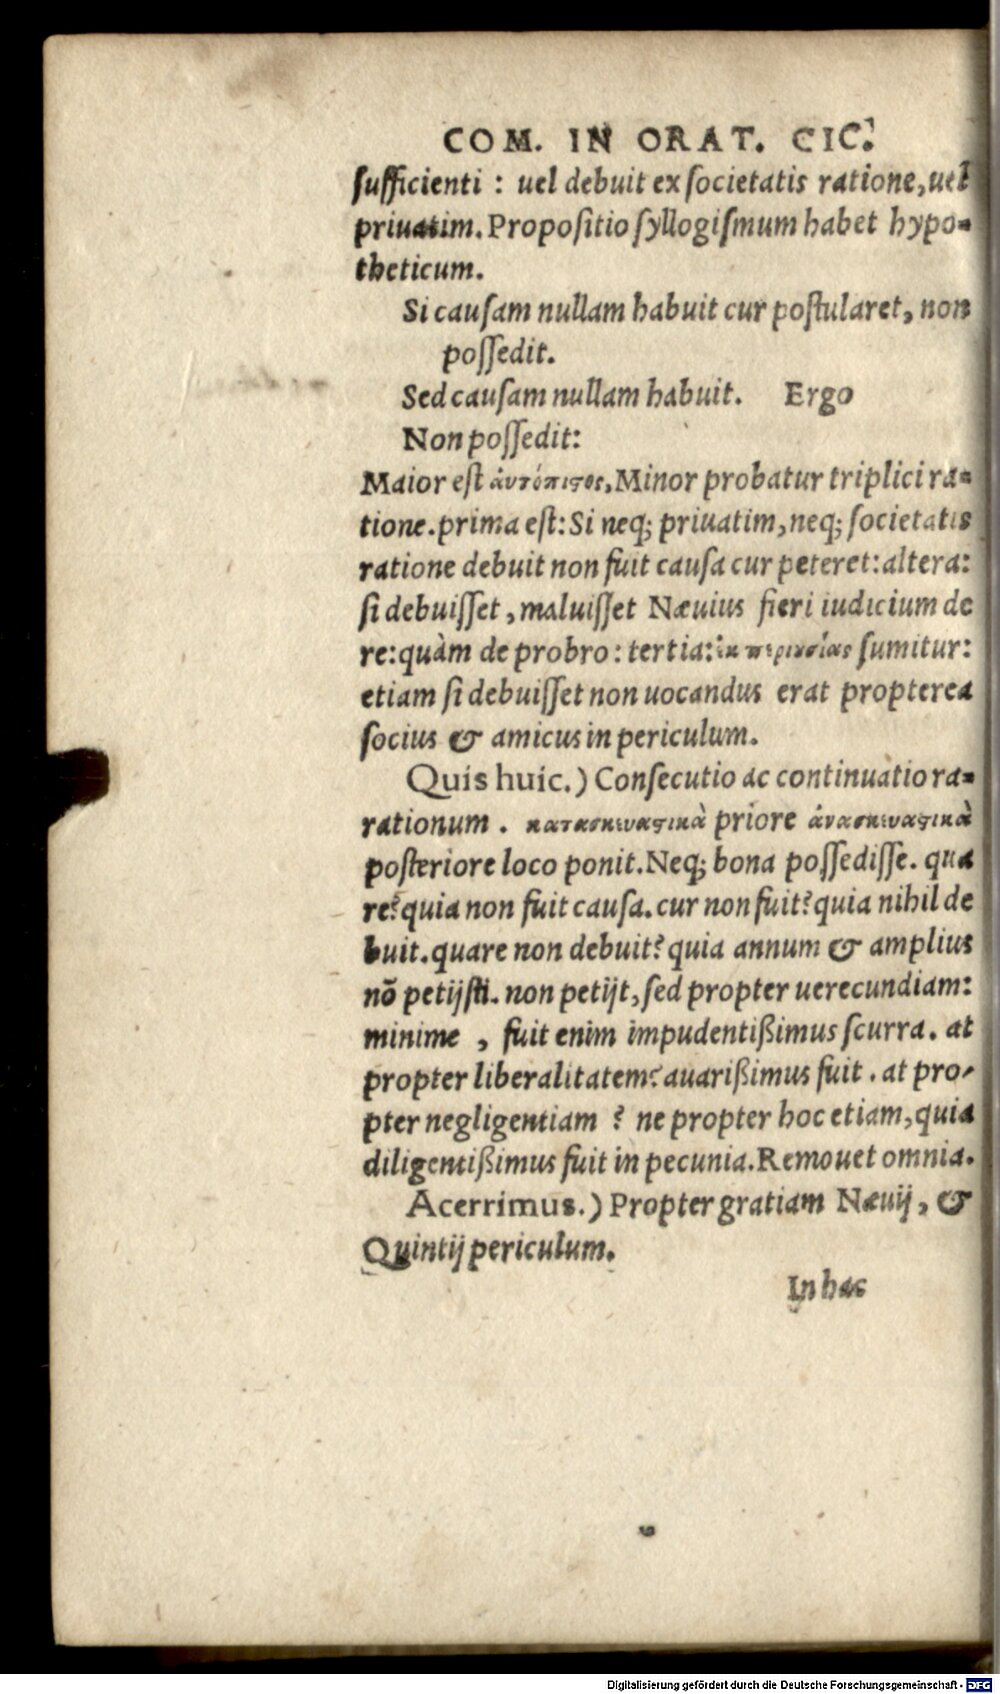 COM. IN ORAT. CIC.
sufficienti : uel debuit ex societatis ratione, uel
priuatim. Propositio syllogismum habet hypo-
theticum.
Si causam nullam habuit cur postularet, non
possedit.
Sed causam nullam habuit. Ergo
Non possedit:
Maior est ἀυτόπιςος, Minor probatur triplici ra-
tione. prima est: Si neq; priuatim, neq; societatis
ratione debuit non fuit causa cur peteret: altera:
si debuisset, maluisset Næuius fieri iudicium de
re: quàm de probro : tertia: ἐκ περιουσίας sumitur:
etiam si debuisset non uocandus erat propterea
socius & amicus in periculum.
Quis huic.) Consecutio ac continuatio ra-
rationum . κατασκευαςικὰ priore ἀνασκευαςικὰ
posteriore loco ponit. Neq; bona possedisse. qua
re? quia non fuit causa. cur non fuit? quia nihil de
buit. quare non debuit? quia annum & amplius
nō petijsti. non petijt, sed propter uerecundiam:
minime , fuit enim impudentißimus scurra. at
propter liberalitatem? auarißimus fuit . at pro-
pter negligentiam ? ne propter hoc etiam, quia
diligentißimus fuit in pecunia. Remouet omnia.
Acerrimus.) Propter gratiam Næuij, &
Quintij periculum.
In hac
Digitalisierung gefördert durch die Deutsche Forschungsgemeinschaft - DFG